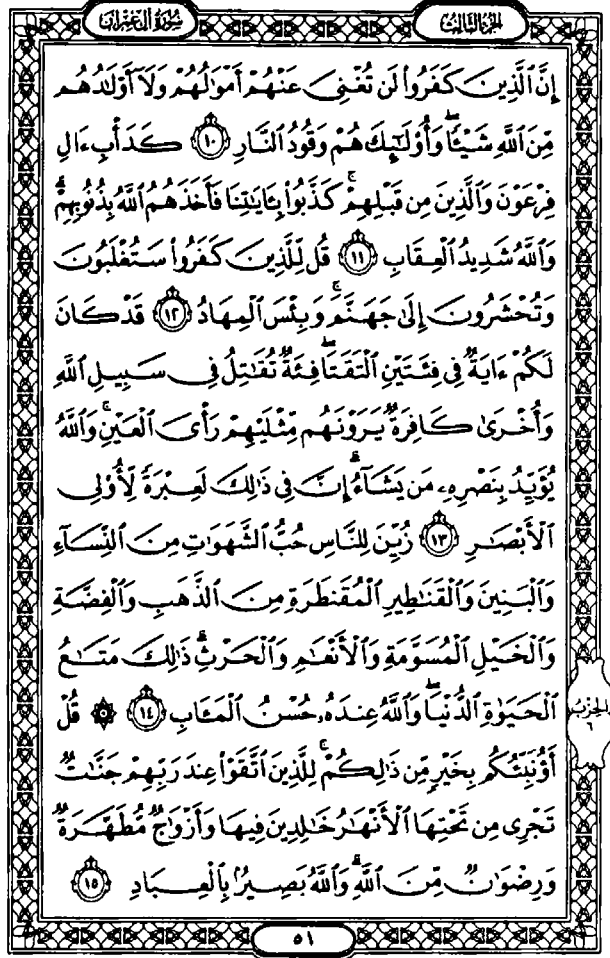 سُورَةُ آلِ عِمْرَان
الجُزءُ الثَّالِثُ
إِنَّ ٱلَّذِينَ كَفَرُوا۟ لَن تُغْنِىَ عَنْهُمْ أَمْوَٰلُهُمْ وَلَآ أَوْلَٰدُهُم
مِّنَ ٱللَّهِ شَيْـًٔا ۖ وَأُو۟لَٰٓئِكَ هُمْ وَقُودُ ٱلنَّارِ ١٠ كَدَأْبِ ءَالِ
فِرْعَوْنَ وَٱلَّذِينَ مِن قَبْلِهِمْ ۚ كَذَّبُوا۟ بِـَٔايَٰتِنَا فَأَخَذَهُمُ ٱللَّهُ بِذُنُوبِهِمْ ۗ
وَٱللَّهُ شَدِيدُ ٱلْعِقَابِ ١١ قُل لِّلَّذِينَ كَفَرُوا۟ سَتُغْلَبُونَ
وَتُحْشَرُونَ إِلَىٰ جَهَنَّمَ ۚ وَبِئْسَ ٱلْمِهَادُ ١٢ قَدْ كَانَ
لَكُمْ ءَايَةٌ فِى فِئَتَيْنِ ٱلْتَقَتَا ۖ فِئَةٌ تُقَٰتِلُ فِى سَبِيلِ ٱللَّهِ
وَأُخْرَىٰ كَافِرَةٌ يَرَوْنَهُم مِّثْلَيْهِمْ رَأْىَ ٱلْعَيْنِ ۚ وَٱللَّهُ
يُؤَيِّدُ بِنَصْرِهِۦ مَن يَشَآءُ ۗ إِنَّ فِى ذَٰلِكَ لَعِبْرَةً لِّأُو۟لِى
ٱلْأَبْصَٰرِ ١٣ زُيِّنَ لِلنَّاسِ حُبُّ ٱلشَّهَوَٰتِ مِنَ ٱلنِّسَآءِ
وَٱلْبَنِينَ وَٱلْقَنَٰطِيرِ ٱلْمُقَنطَرَةِ مِنَ ٱلذَّهَبِ وَٱلْفِضَّةِ
وَٱلْخَيْلِ ٱلْمُسَوَّمَةِ وَٱلْأَنْعَٰمِ وَٱلْحَرْثِ ۗ ذَٰلِكَ مَتَٰعُ
ٱلْحَيَوٰةِ ٱلدُّنْيَا ۖ وَٱللَّهُ عِندَهُۥ حُسْنُ ٱلْمَـَٔابِ ١٤ ۞ قُلْ
الحِزب
٦
أَؤُنَبِّئُكُم بِخَيْرٍ مِّن ذَٰلِكُمْ ۚ لِلَّذِينَ ٱتَّقَوْا۟ عِندَ رَبِّهِمْ جَنَّٰتٌ
تَجْرِى مِن تَحْتِهَا ٱلْأَنْهَٰرُ خَٰلِدِينَ فِيهَا وَأَزْوَٰجٌ مُّطَهَّرَةٌ
وَرِضْوَٰنٌ مِّنَ ٱللَّهِ ۗ وَٱللَّهُ بَصِيرٌۢ بِٱلْعِبَادِ ١٥
٥١